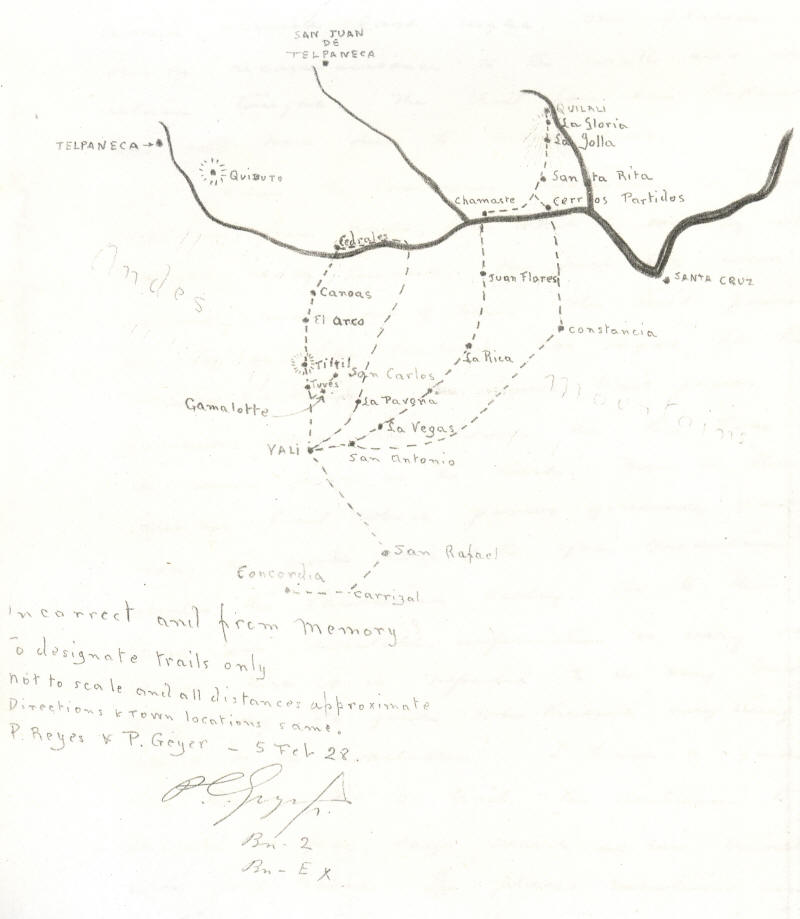 SAN JUAN
DE
TELPANECA
QUILALI
La Gloria
La Jolla
TELPANECA
QUIBUTO
Santa Rita
Chamaste
Cerros Partidos
Cedrales
SANTA CRUZ
Andes
Juan Flores
Canoas
El Arco
Constancia
La Rica
San Carlos
Tuves
Mountains
Gamalotte
La Pavona
La Vegas
VALI
San Antonio
San Rafael
Concordia
Carrizal
Incorrect and from memory
To designate trails only
not to scale and all distances approximate
Directions & Town locations same.
P. Reyes & P. Geyer - 5 Feb 28.
Bn-2
Bn-EX